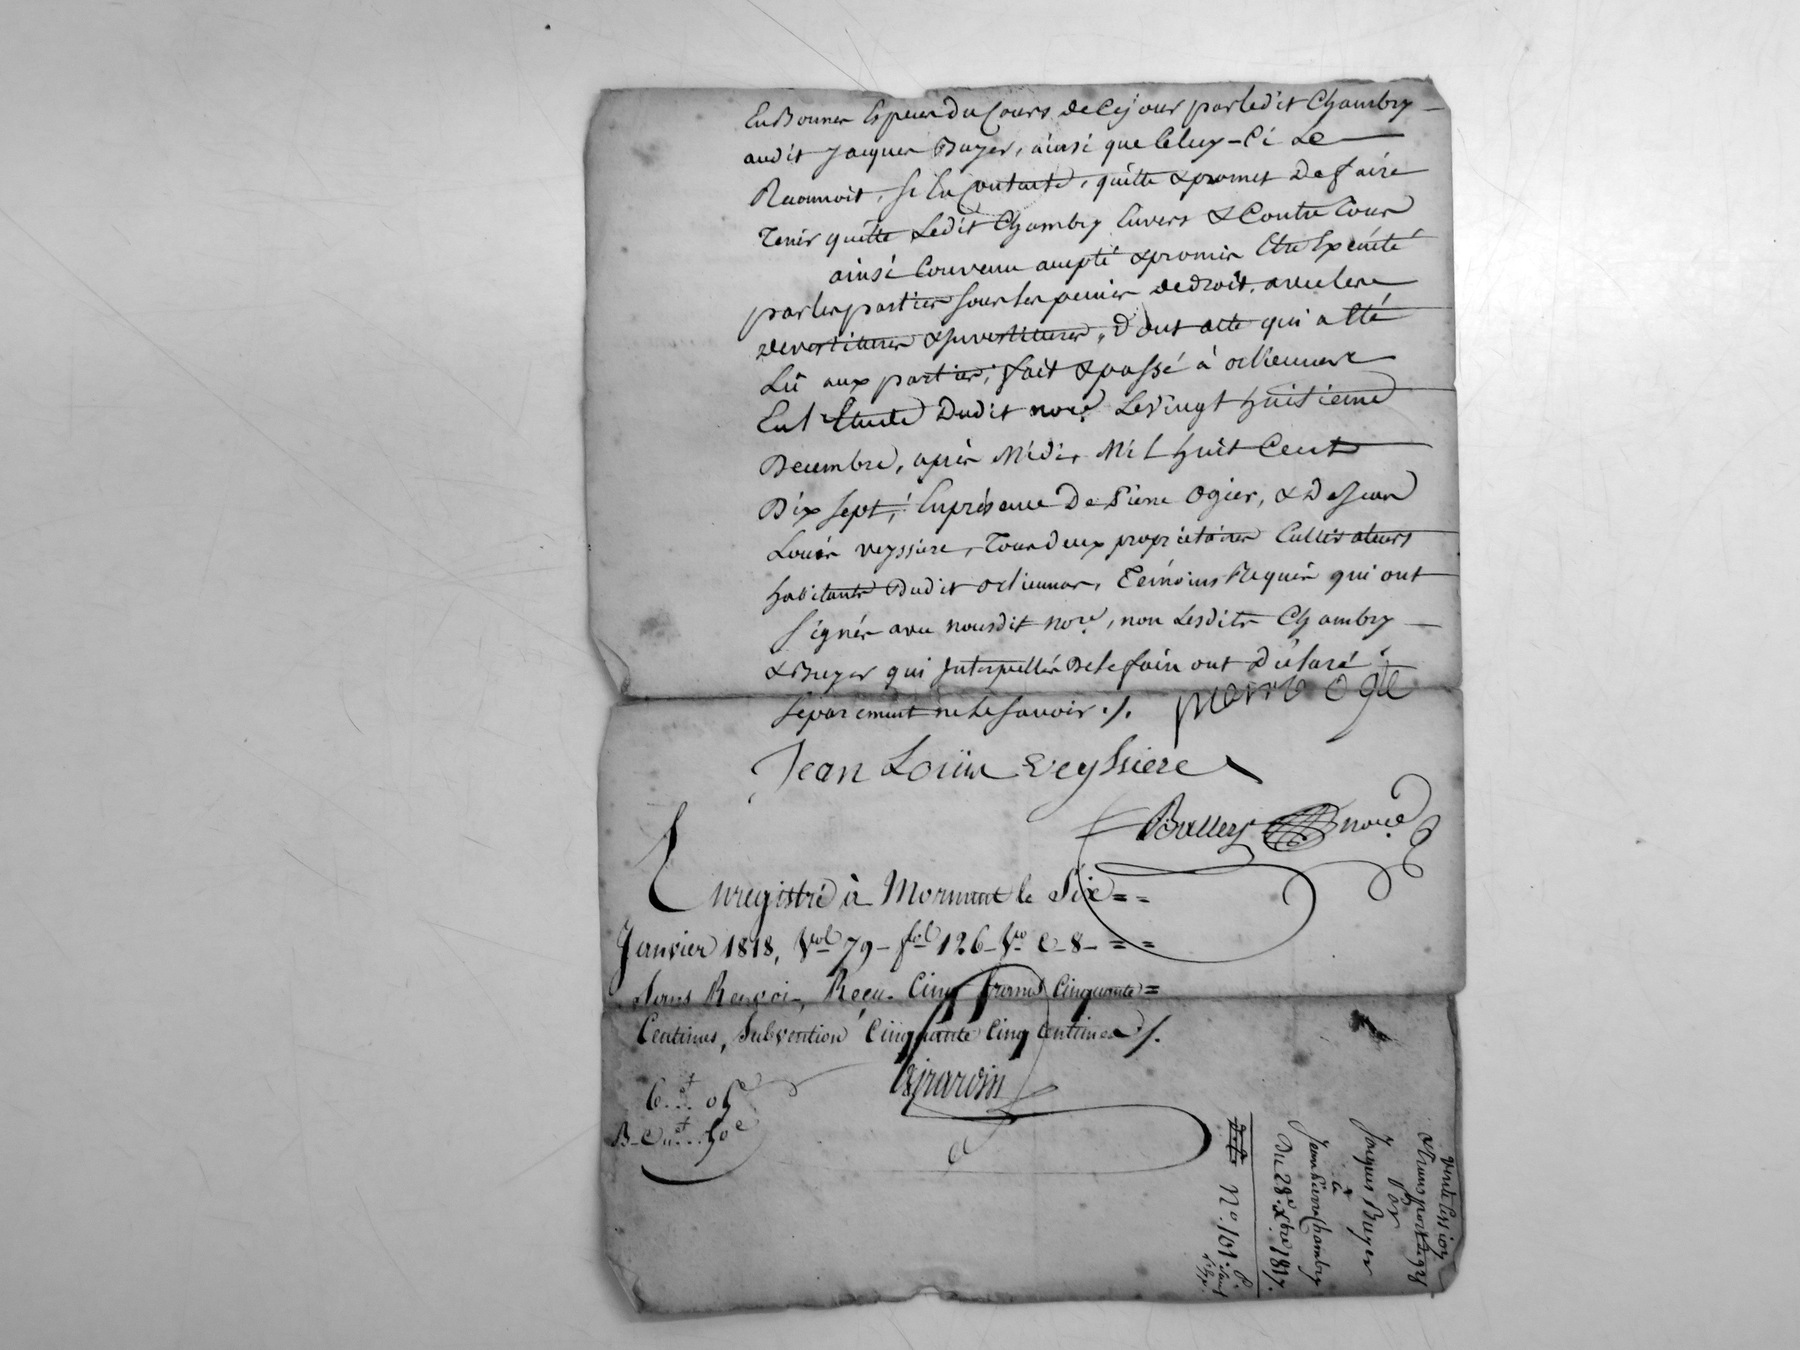 En Bonnes Especes du Cours de Ce jour par ledit Chambry
audit Jacques Buyer, ainsi que Celuy-Ci Le
Reconnoit, se En Contente, quitte & promet De faire
Tenir quitte Ledit Chambry Envers & Contre Tous
ainsi Convenu accepté & promis Etre Exécuté
par les parties sous les peines de droit, avec les
devestitures & Investitures, Dont acte qui a Eté
Lû aux parties, fait & passé à orliennas
En l'Etude Dudit nore. Le vingt huitieme
Decembre, après Midi, Mil huit Cent
Dix sept, En présence De Pierre Ogier, & De Jean
Louis veyssiere, Tous deux propriétaires Cultivateurs
habitants Dudit orliennas, Témoins Requis qui ont
signés avec nousdit nore, non Lesdits Chambry
& Buyer qui Interpellés De le faire ont Déclaré
séparement ne Le savoir ./.
pierre Ogie
Jean Loüis veyssiere
Ballety nore
Enregistré à Mornant le Six = =
Janvier 1818, Vol 79 - fol 126 - Vo C - 8 - = =
sans Renvoi, Reçu Cinq francs Cinquante =
Centimes, subvention Cinquante Cinq Centimes ./.
Girardin
vente Cession
& transport
Par
Jacques Buyer
à
Jean Pierre Chambry
Du 28e. Xbre 1817.
No. 101.